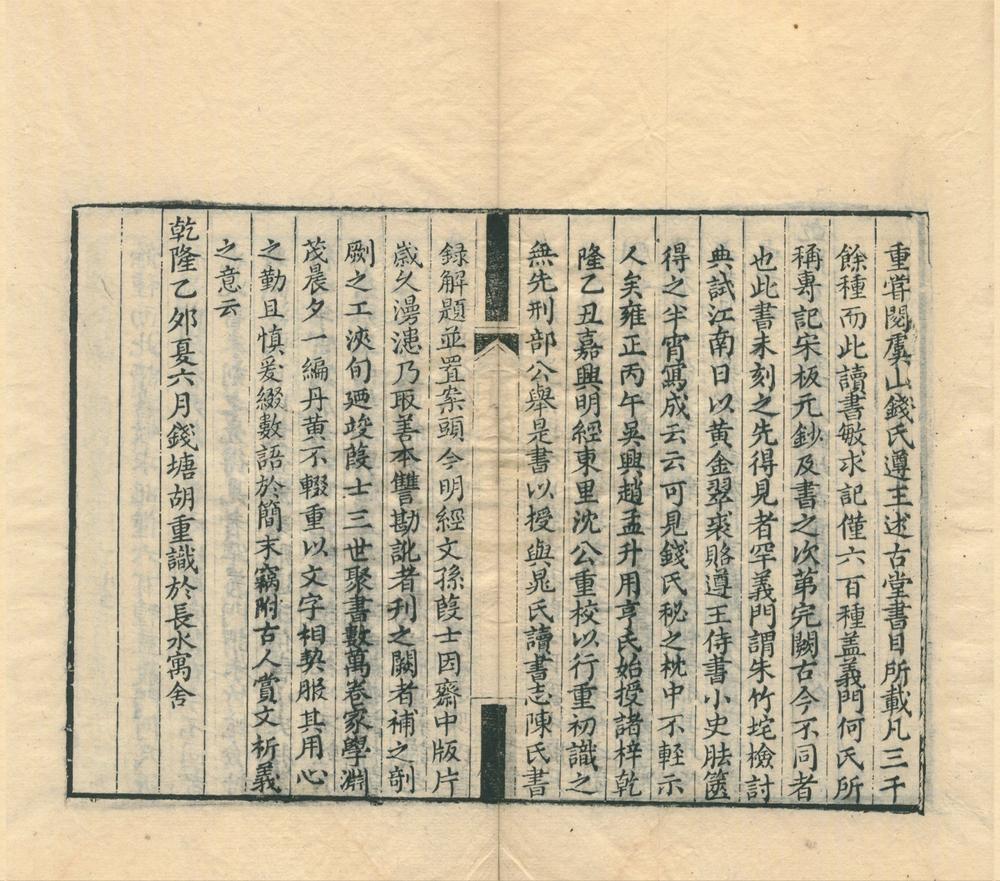 重嘗閱虞山錢氏遵王述古堂書目所載凡三千
餘種而此讀書敏求記僅六百種盖義門何氏所
稱專記宋板元鈔及書之次第完闕古今不同者
也此書未刻之先得見者罕義門謂朱竹垞檢討
典試江南日以黄金翠裘賂遵王侍書小史胠篋
得之半宵寫成云云可見錢氏秘之枕中不輕示
人矣雍正丙午吳興趙孟升用亨氏始授諸梓乾
隆乙丑嘉興明經東里沈公重校以行重初識之
無先刑部公舉是書以授與晁氏讀書志陳氏書
録解題並置案頭今明經文孫葭士因齋中版片
歲久漫漶乃取善本讐勘訛者刋之闕者補之剞
劂之工浹旬廼竣葭士三世聚書數萬卷家學淵
茂晨夕一編丹黄不輟重以文字相契服其用心
之勤且慎爰綴數語於簡末竊附古人賞文析義
之意云
乾隆乙夘夏六月錢塘胡重識於長水寓舍